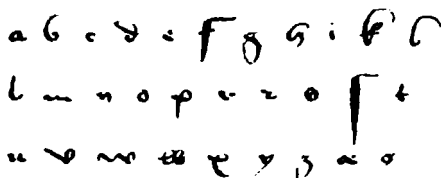 a b c d e f g h i k l
l m n o p r r o ſ t
u v w w x y z a o